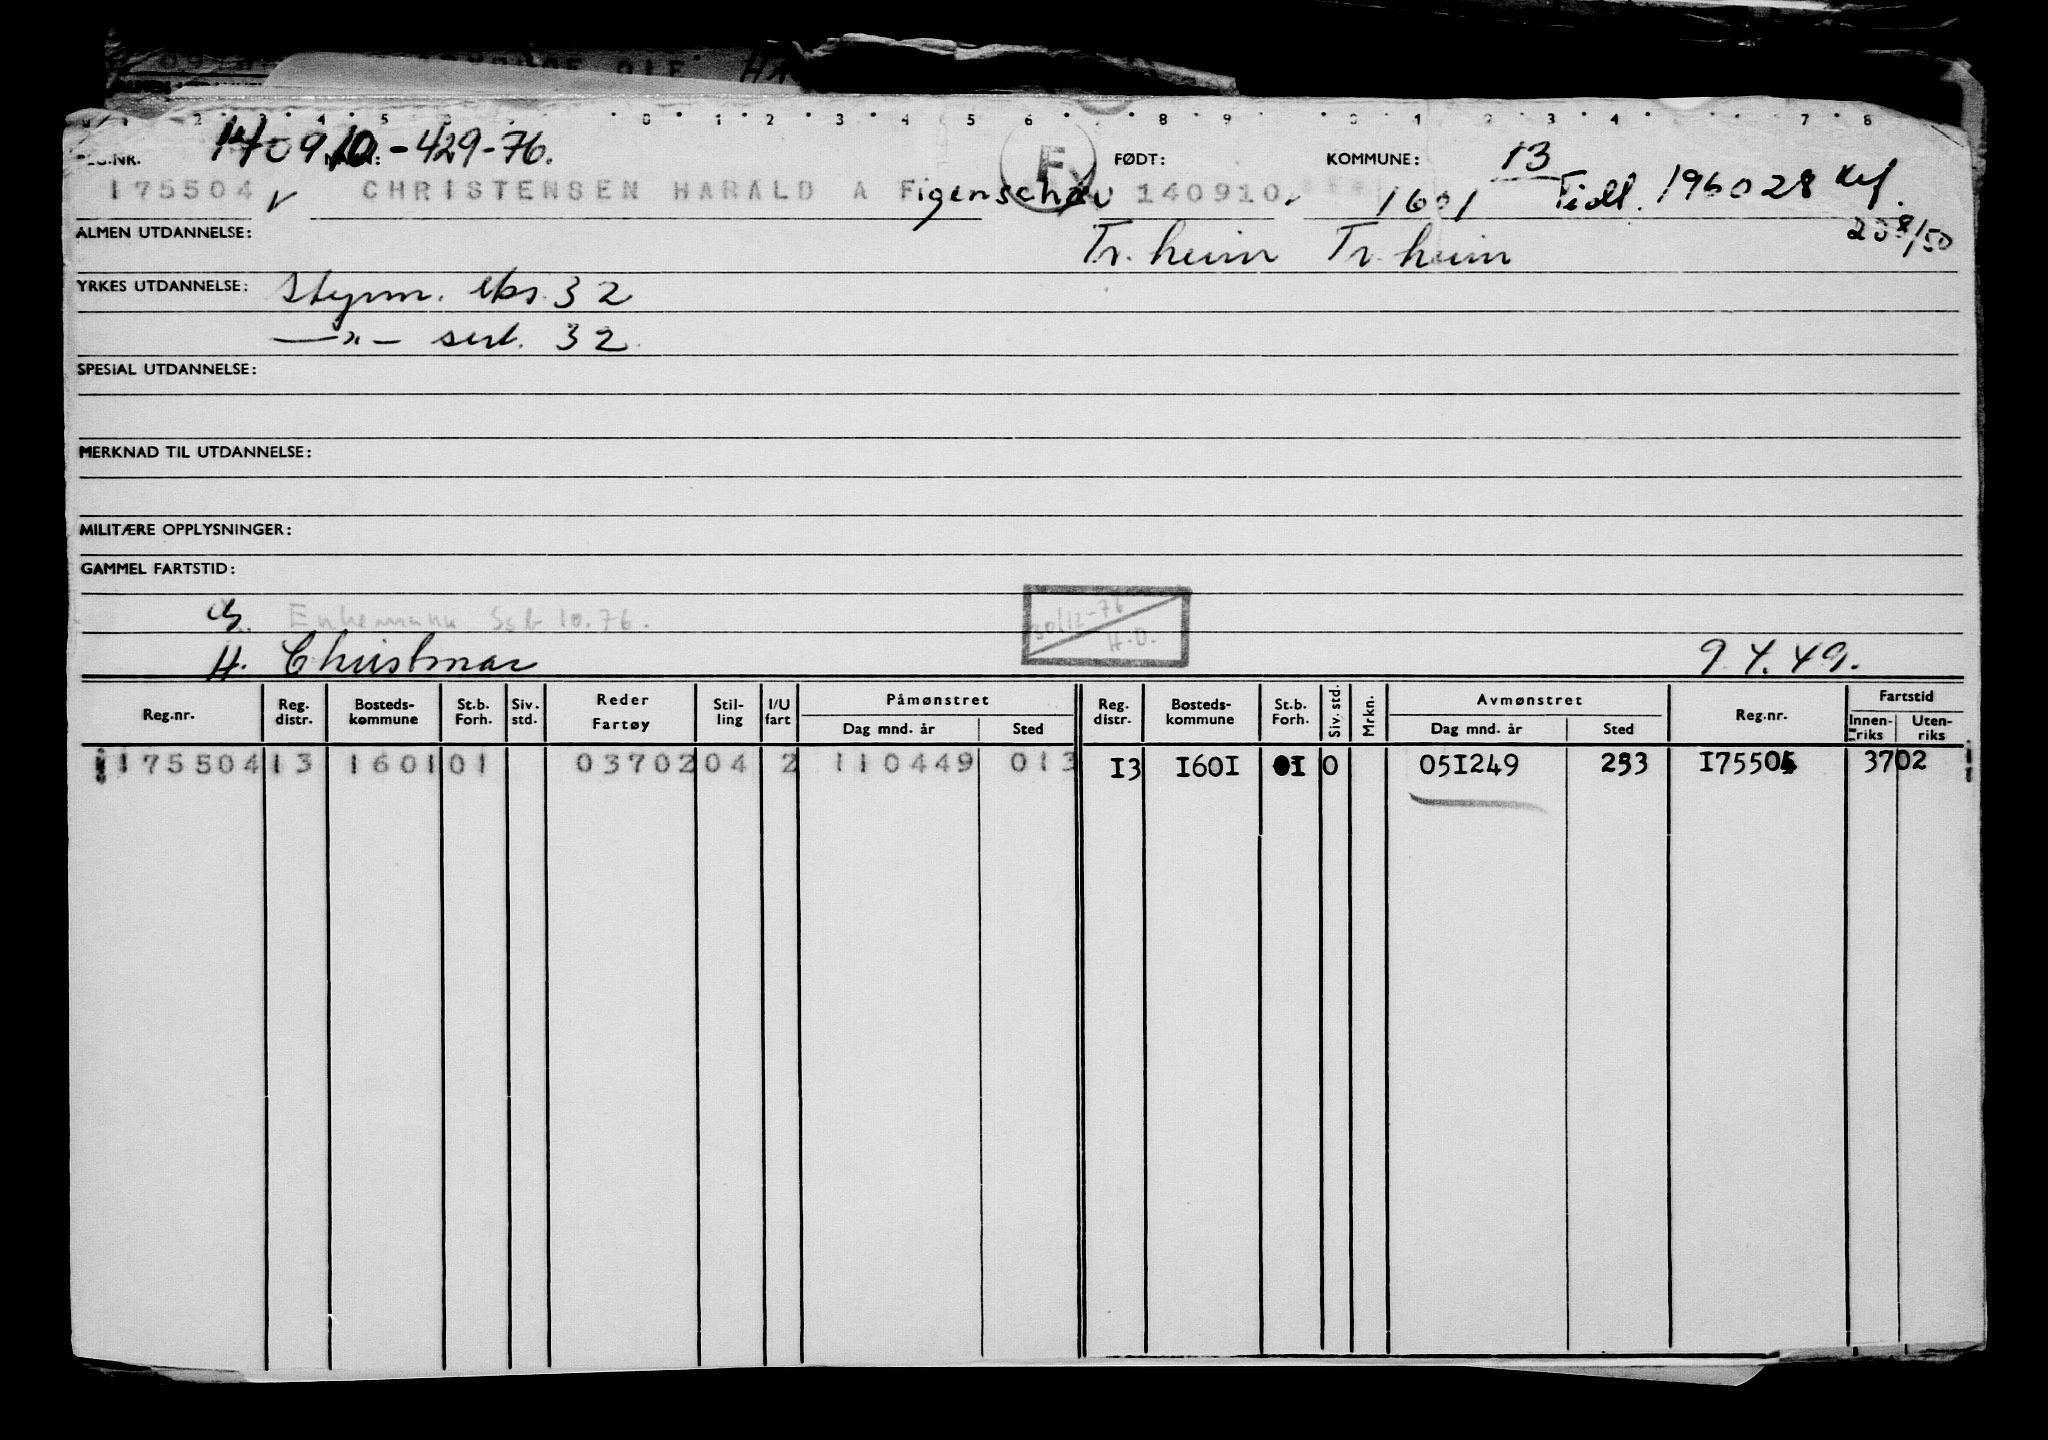 140910-429-76.
REG.NR. NAVN: FØDT: KOMMUNE: 13
175504 CHRISTENSEN HARALD A Figenschau F 140910 1601 Tidl. 196028
ALMEN UTDANNELSE: Tr.heim Tr.heim 28/50
YRKES UTDANNELSE: styrm. eks. 32
—"— sert. 32
SPESIAL UTDANNELSE:
MERKNAD TIL UTDANNELSE:
MILITÆRE OPPLYSNINGER:
GAMMEL FARTSTID:
Enkemann Ssb 10.76. 30/12-76 H.O.
H. Christmar 9.4.49.
Reg.nr. Reg. distr. Bosteds-kommune St.b. Forh. Siv. std. Reder Fartøy Stil-ling I/U fart Påmønstret Dag mnd. år Sted Reg. distr. Bosteds-kommune St.b. Forh. Siv. std. Mrkn. Avmønstret Dag mnd. år Sted Reg.nr. Fartstid Innen-riks Uten-riks
175504 13 1601 01 03702 04 2 110449 013 I3 I60I 0I 0 05I249 233 I75504 3702